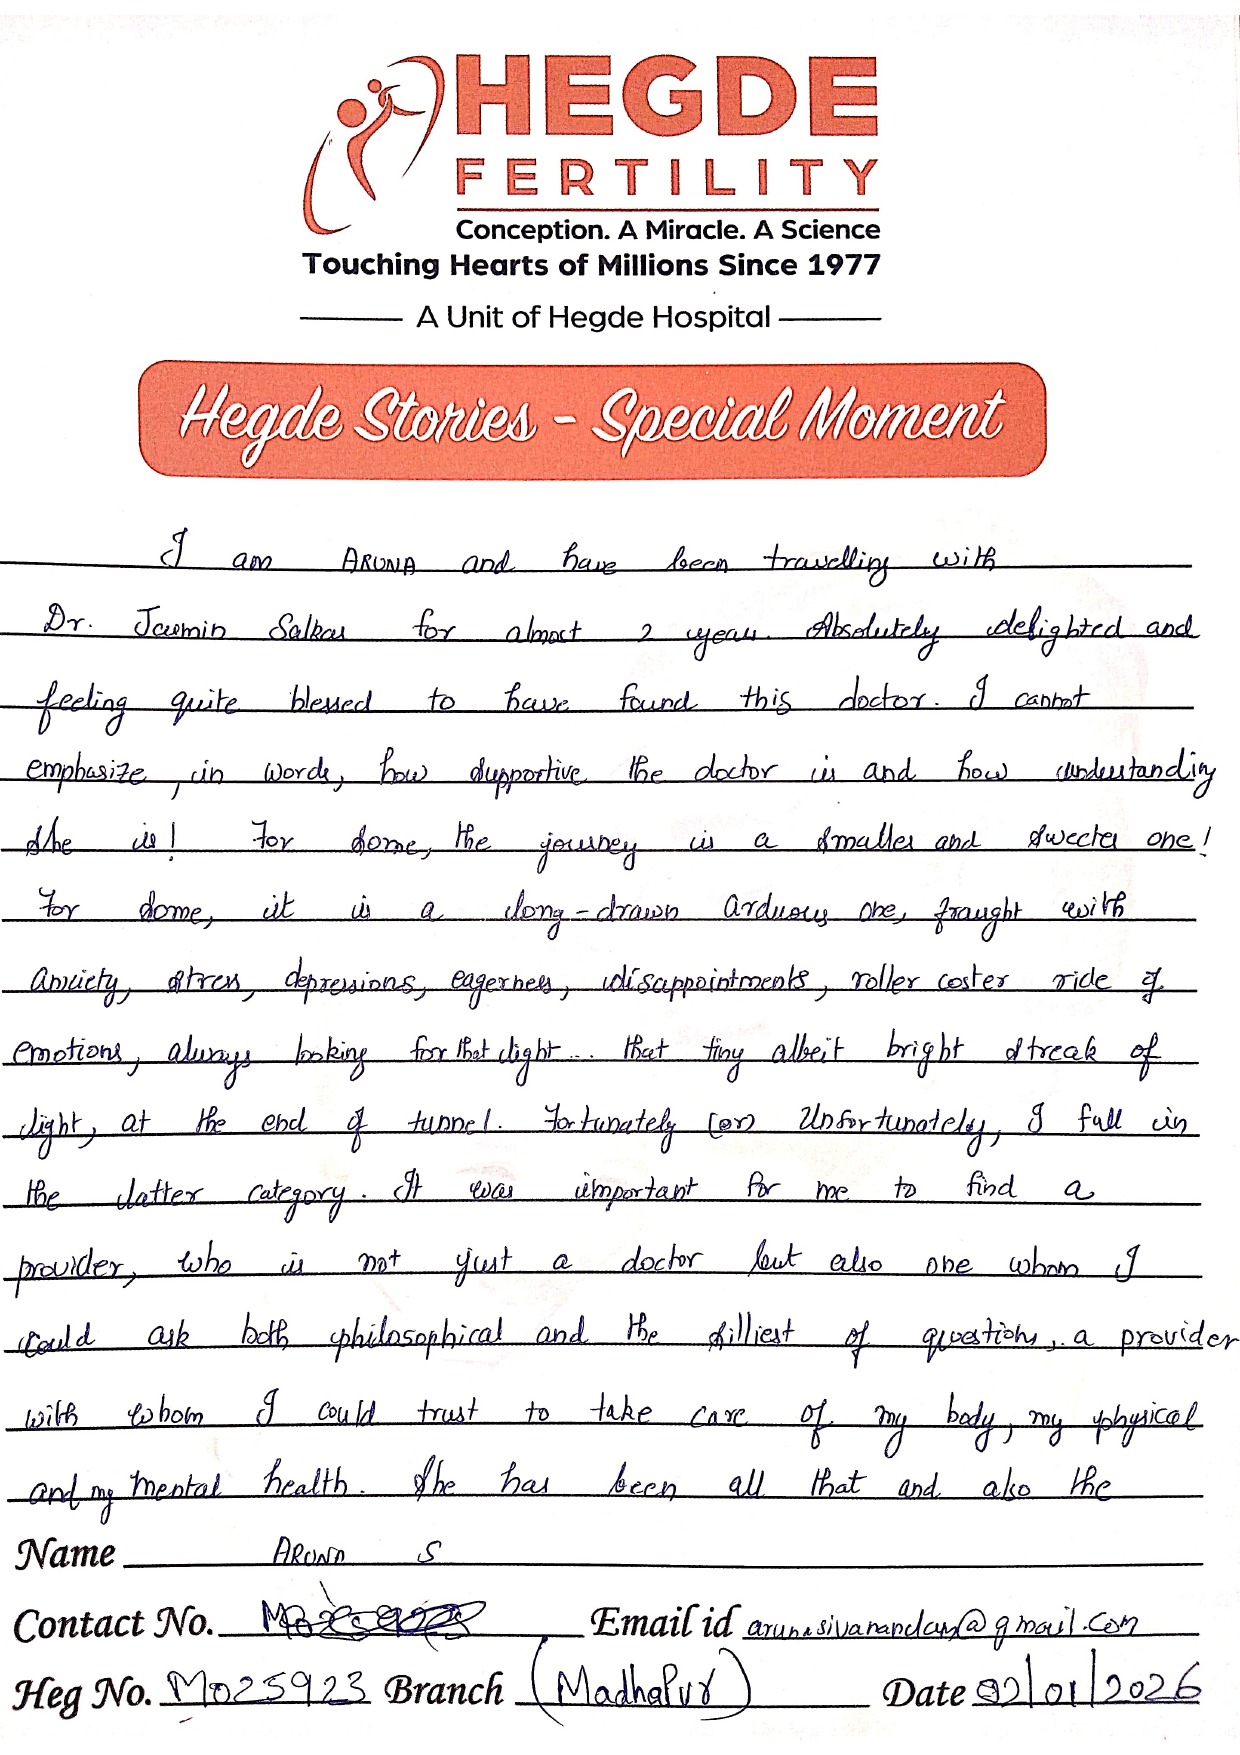 HEGDE
FERTILITY
Conception. A Miracle. A Science
Touching Hearts of Millions Since 1977
A Unit of Hegde Hospital
Hegde Stories - Special Moment
I am ARUNA and have been travelling with
Dr. Jasmin for almost 2 years. Absolutely delighted and
feeling quite blessed to have found this doctor. I cannot
emphasize, in words, how supportive the doctor is and how understanding
she is! For some, the journey is a smaller and sweeter one!
For some, it is a long-drawn arduous one, fraught with
anxiety, stress, depressions, eagerness, disappointments, roller coster ride of
emotions, always looking for that light... that tiny albeit bright streak of
light, at the end of tunnel. Fortunately (or) Unfortunately, I fall in
the latter category. It was important for me to find a
provider, who is not just a doctor but also one whom I
could ask both philosophical and the silliest of questions, a provider
with whom I could trust to take care of my body, my physical
and my mental health. She has been all that and also the
Name ARUNA S
Contact No. Email id arunasivanandam@gmail.com
Heg No. M025923 Branch (Madhapur) Date 02/01/2026